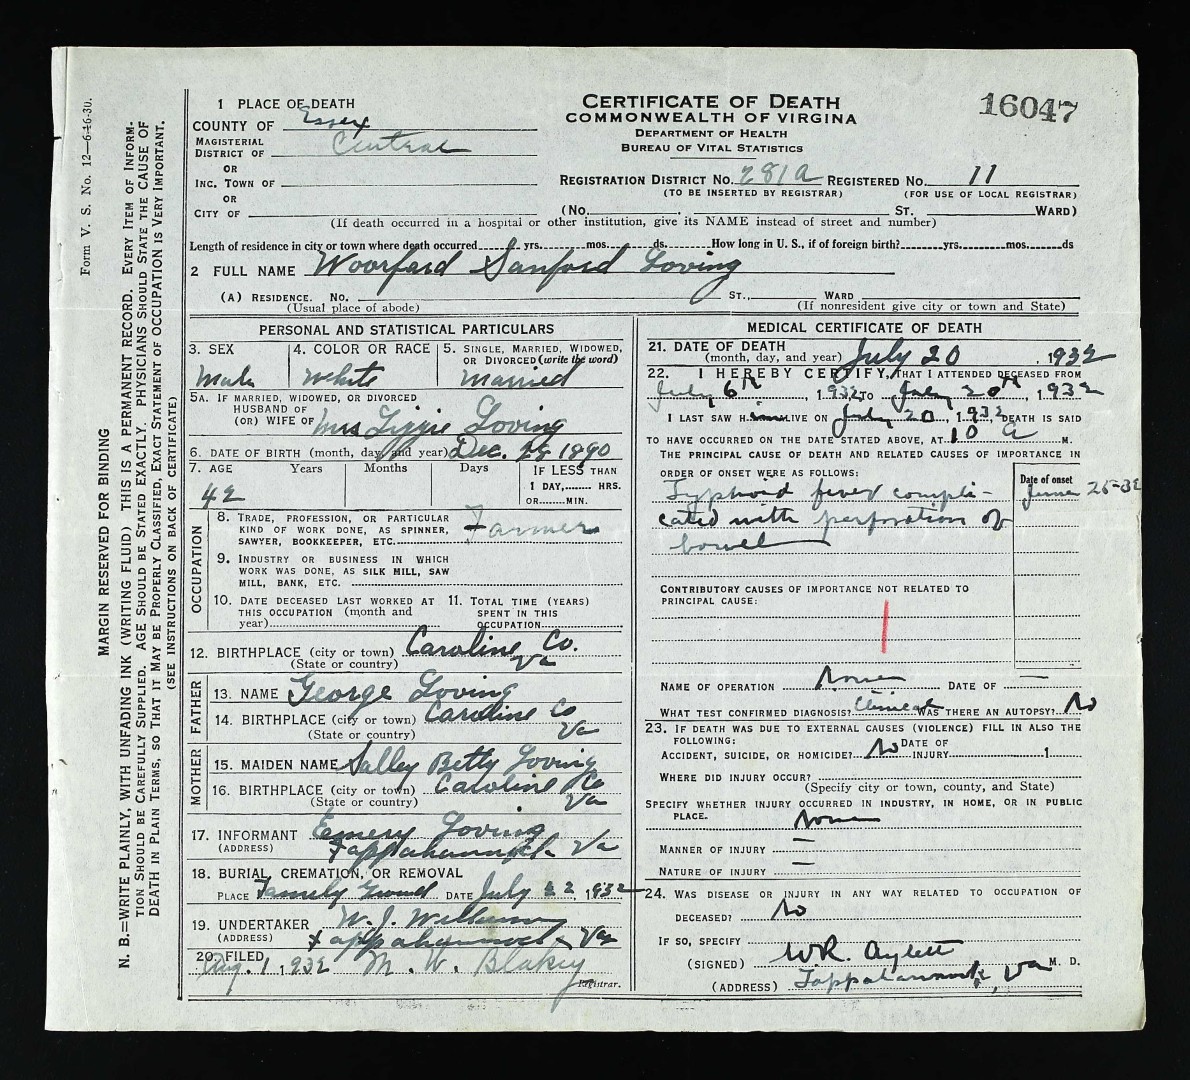 Form V. S. No. 12—6-16-30.
MARGIN RESERVED FOR BINDING
N. B.=WRITE PLAINLY, WITH UNFADING INK (WRITING FLUID) THIS IS A PERMANENT RECORD. EVERY ITEM OF INFORM-
TION SHOULD BE CAREFULLY SUPPLIED. AGE SHOULD BE STATED EXACTLY. PHYSICIANS SHOULD STATE THE CAUSE OF
DEATH IN PLAIN TERMS, SO THAT IT MAY BE PROPERLY CLASSIFIED, EXACT STATEMENT OF OCCUPATION IS VERY IMPORTANT.
(SEE INSTRUCTIONS ON BACK OF CERTIFICATE)
CERTIFICATE OF DEATH
COMMONWEALTH OF VIRGINA
DEPARTMENT OF HEALTH
BUREAU OF VITAL STATISTICS
16047
1 PLACE OF DEATH
COUNTY OF Essex
MAGISTERIAL
DISTRICT OF Central
OR
INC. TOWN OF
OR
CITY OF
REGISTRATION DISTRICT NO. 281a REGISTERED NO. 11
(TO BE INSERTED BY REGISTRAR) (FOR USE OF LOCAL REGISTRAR)
(NO. ST. WARD)
(If death occurred in a hospital or other institution, give its NAME instead of street and number)
Length of residence in city or town where death occurred yrs. mos. ds. How long in U. S., if of foreign birth? yrs. mos. ds
2 FULL NAME Woorfard Sanford Loving
(A) RESIDENCE. NO. ST., WARD
(Usual place of abode) (If nonresident give city or town and State)
PERSONAL AND STATISTICAL PARTICULARS
3. SEX 4. COLOR OR RACE 5. SINGLE, MARRIED, WIDOWED, OR DIVORCED (write the word)
Male White Married
5A. IF MARRIED, WIDOWED, OR DIVORCED
HUSBAND OF
(OR) WIFE OF Mrs Lizzie Loving
6. DATE OF BIRTH (month, day, and year) Dec. 25 1890
7. AGE Years Months Days IF LESS THAN
1 DAY, HRS.
OR MIN.
42
OCCUPATION
8. TRADE, PROFESSION, OR PARTICULAR
KIND OF WORK DONE, AS SPINNER,
SAWYER, BOOKKEEPER, ETC. Farmer
9. INDUSTRY OR BUSINESS IN WHICH
WORK WAS DONE, AS SILK MILL, SAW
MILL, BANK, ETC.
10. DATE DECEASED LAST WORKED AT
THIS OCCUPATION (month and
year)
11. TOTAL TIME (YEARS)
SPENT IN THIS
OCCUPATION
12. BIRTHPLACE (city or town) Caroline Co.
(State or country) Va
FATHER
13. NAME George Loving
14. BIRTHPLACE (city or town) Caroline Co
(State or country) Va
MOTHER
15. MAIDEN NAME Salley Betty Loving
16. BIRTHPLACE (city or town) Caroline Co
(State or country) Va
17. INFORMANT Emery Loving
(ADDRESS) Tappahannock Va
18. BURIAL, CREMATION, OR REMOVAL
PLACE Family Ground DATE July 22, 1932
19. UNDERTAKER W. J.
(ADDRESS) Tappahannock Va
20. FILED Aug. 1, 1932 M. W. Blakey
Registrar.
MEDICAL CERTIFICATE OF DEATH
21. DATE OF DEATH
(month, day, and year) July 20, 1932
22. I HEREBY CERTIFY, THAT I ATTENDED DECEASED FROM
July 6th, 1932 TO July 20th, 1932
I LAST SAW H im ALIVE ON July 20, 1932, DEATH IS SAID
TO HAVE OCCURRED ON THE DATE STATED ABOVE, AT 10 a M.
THE PRINCIPAL CAUSE OF DEATH AND RELATED CAUSES OF IMPORTANCE IN
ORDER OF ONSET WERE AS FOLLOWS:
Date of onset
Typhoid fever compli- June 25-32
cated with perforation of
bowel
CONTRIBUTORY CAUSES OF IMPORTANCE NOT RELATED TO
PRINCIPAL CAUSE:
NAME OF OPERATION None DATE OF —
WHAT TEST CONFIRMED DIAGNOSIS? Clinical WAS THERE AN AUTOPSY? No
23. IF DEATH WAS DUE TO EXTERNAL CAUSES (VIOLENCE) FILL IN ALSO THE
FOLLOWING:
ACCIDENT, SUICIDE, OR HOMICIDE? No DATE OF INJURY 1
WHERE DID INJURY OCCUR?
(Specify city or town, county, and State)
SPECIFY WHETHER INJURY OCCURRED IN INDUSTRY, IN HOME, OR IN PUBLIC
PLACE. None
MANNER OF INJURY —
NATURE OF INJURY —
24. WAS DISEASE OR INJURY IN ANY WAY RELATED TO OCCUPATION OF
DECEASED? No
IF SO, SPECIFY
(SIGNED) W.R. Aylett M. D.
(ADDRESS) Tappahannock, Va